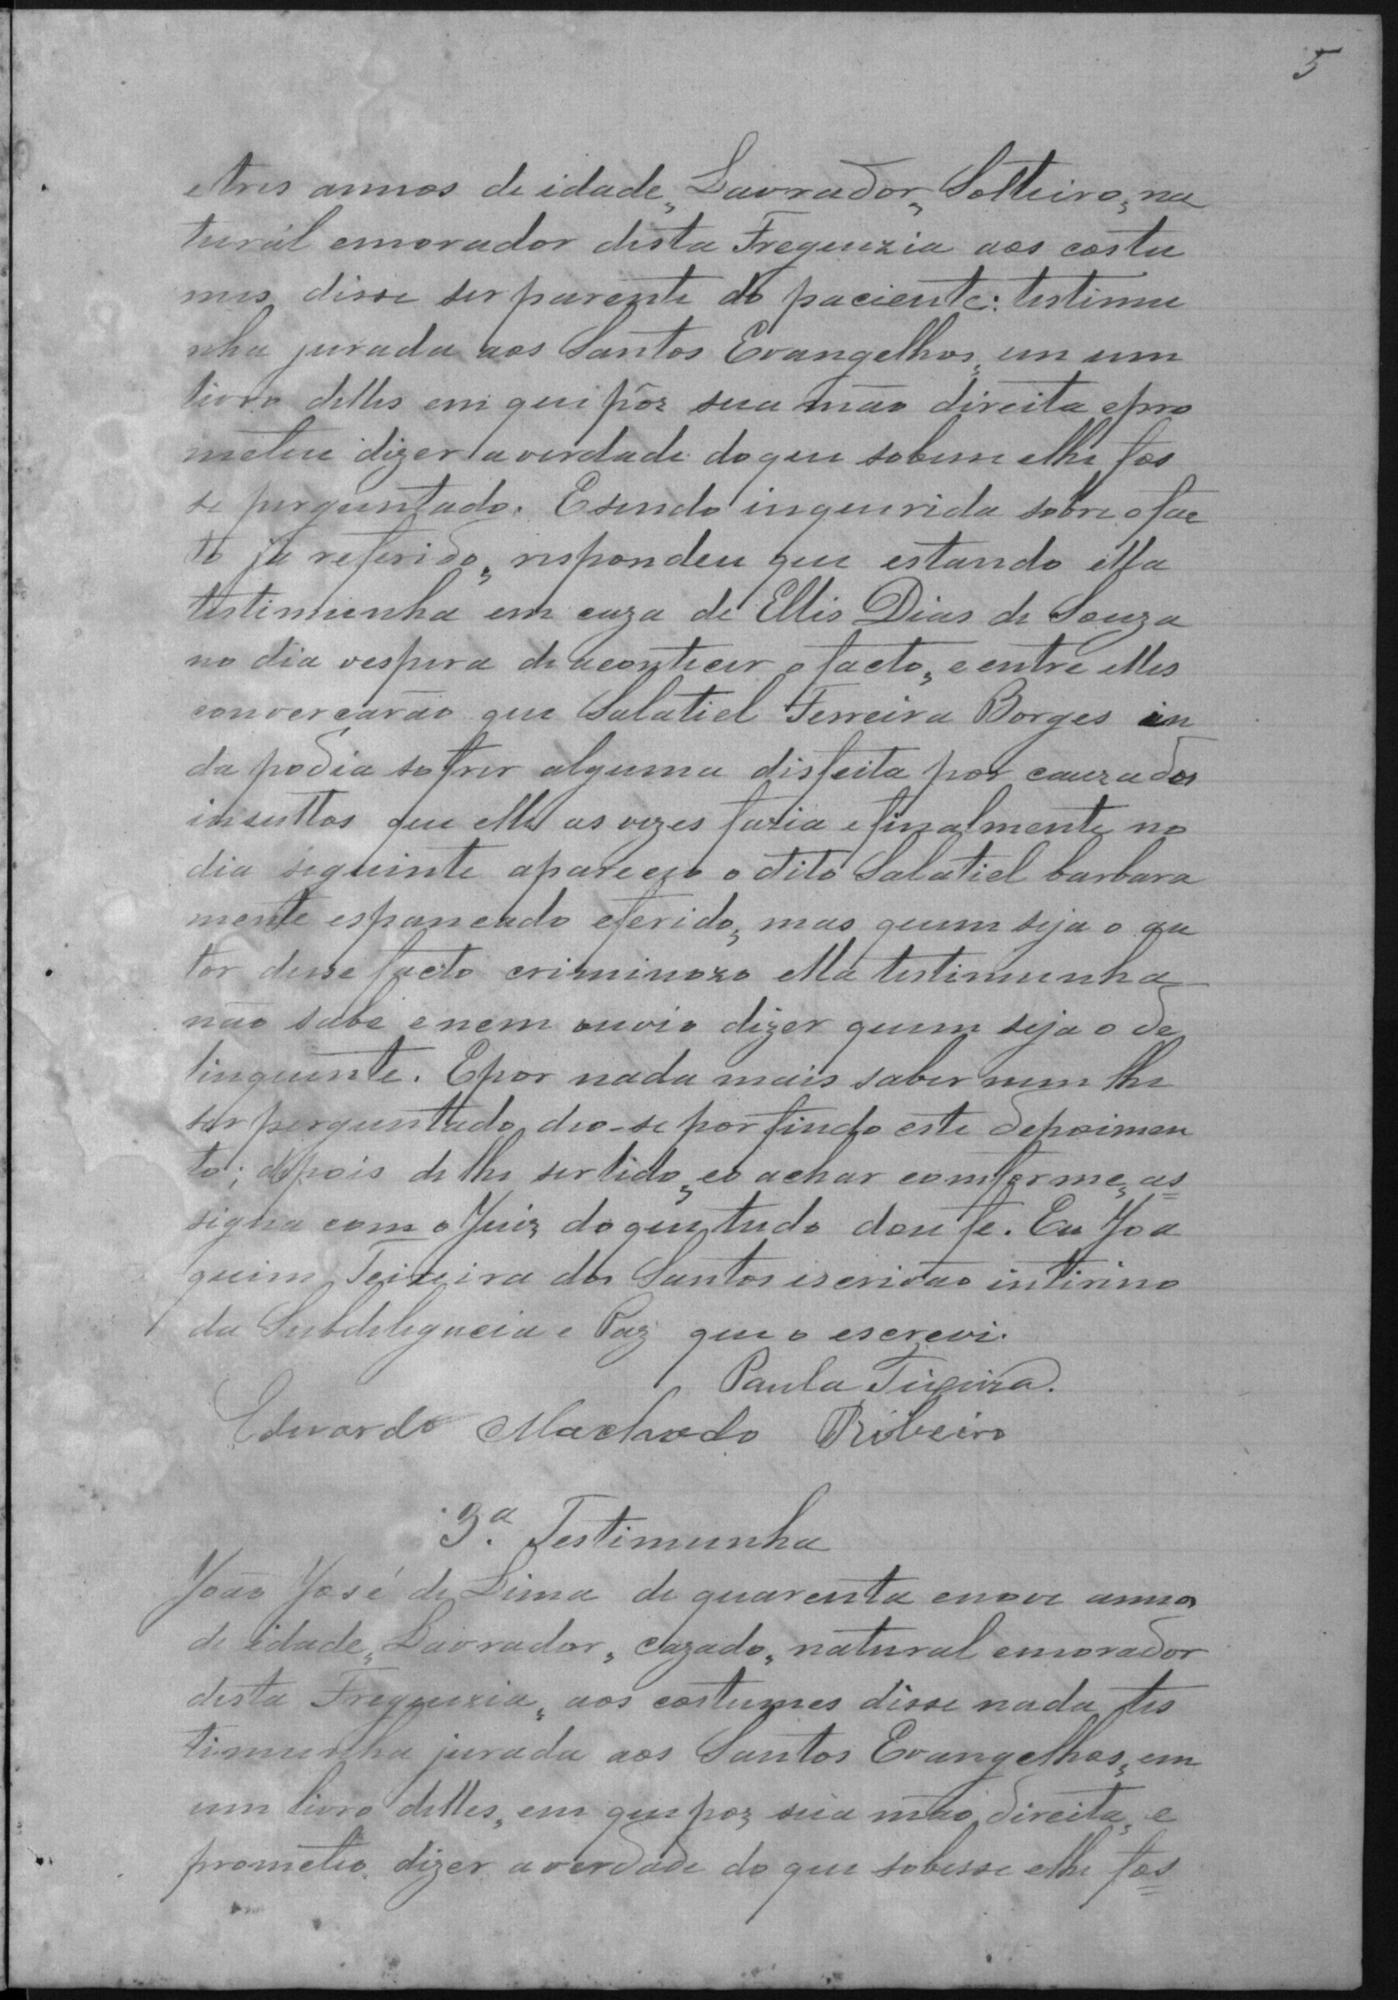 5
etres annos de idade, Lavrador, Solteiro, na
turál emorador desta Freguezia aos costu
mes disse ser parente do paciente: testimu
nha jurada aos Santos Evangelhos, em um
livro delles em que pôz sua mão direita epro
meteu dizer averdade do que sobeme elhe fos
se perguntado. Esendo inquerida sobre ofac
to já referido, respondeu que estando ella
testimunha em caza de Ellis Dias de Souza
no dia vespera de acontecer o facto, e entre elles
convercarão que Salatiel Ferreira Borges in
da podia sofrer alguma disfeita por cauza dos
insultos que elle as vezes fazia efinalmente no
dia seguinte apareceo o dito Salatiel barbara
mente espancado eferido, mas quem seja o au
tor desse facto criminozo ella testimunha
não sabe enem ouvio dizer quem seja o de
linquente. Epor nada mais saber nem lhe
ser perguntado, deo-se por findo este depoimen
to; depois de lhe ser lido, eo achar comforme, as=
signa com o Juiz do que tudo dou fé. Eu Joa
quim Teixeira dos Santos escrivão intirino
da Subdelegacia e Paz que o escrevi.
Paula Teixeira.
Eduardo Machado Ribeiro
3.ª Testimunha
João José de Lima de quarenta enove annos
de idade, Lavrador, cazado, natural emorador
desta Freguezia, aos costumes disse nada tes
timunha jurada aos Santos Evangelhos, em
um livro delles, em que poz sua mão direita, e
prometeo dizer averdade do que sobesse elhe fos=